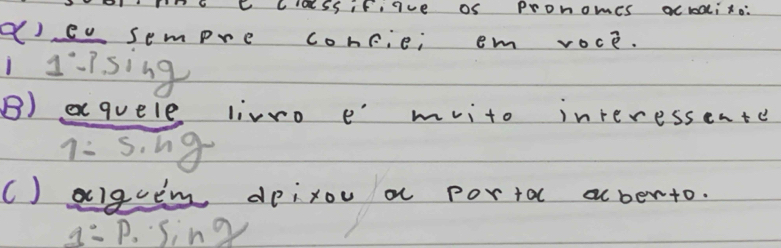 sublinhe e classifique os pronomes acaixo:
a) eu sempre confiei em você.
1ª P. Sing
B) aquele livro é muito interessante
1ª Sing
C) alguém deixou a porta aberto.
1ª P. Sing